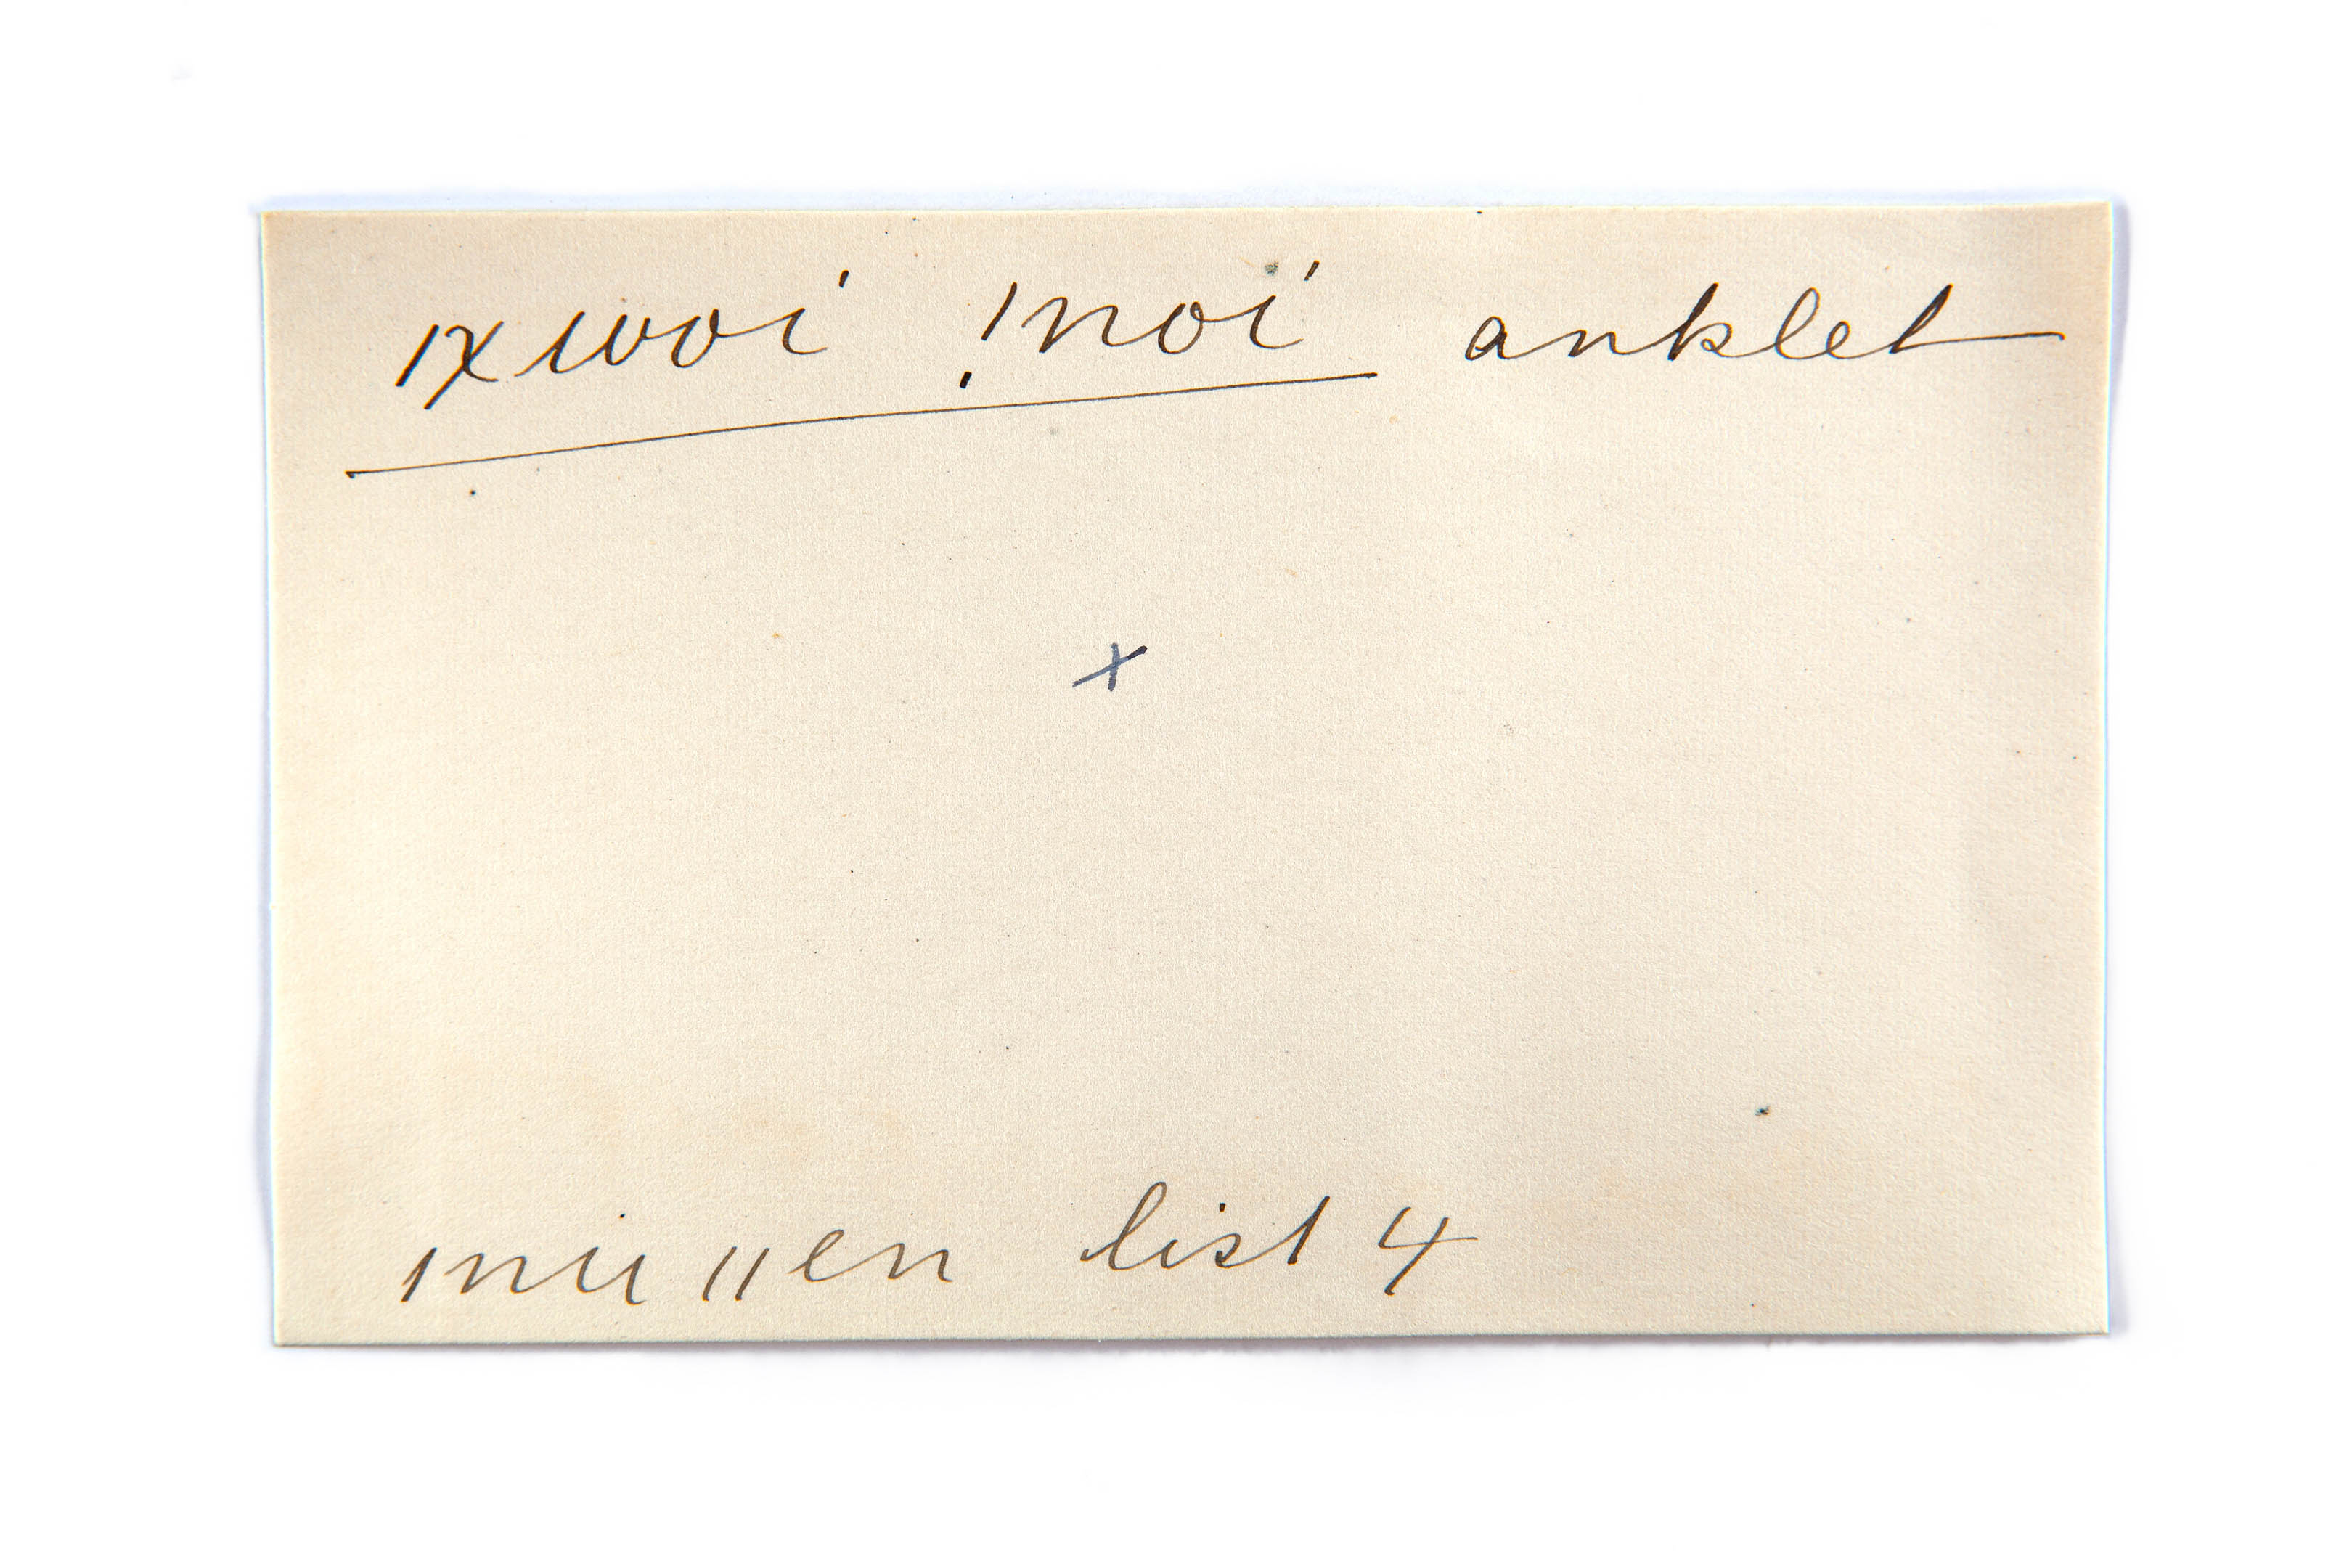 ǀxwoi ǃnoi anklet
x
ǀnu ǁen list 4